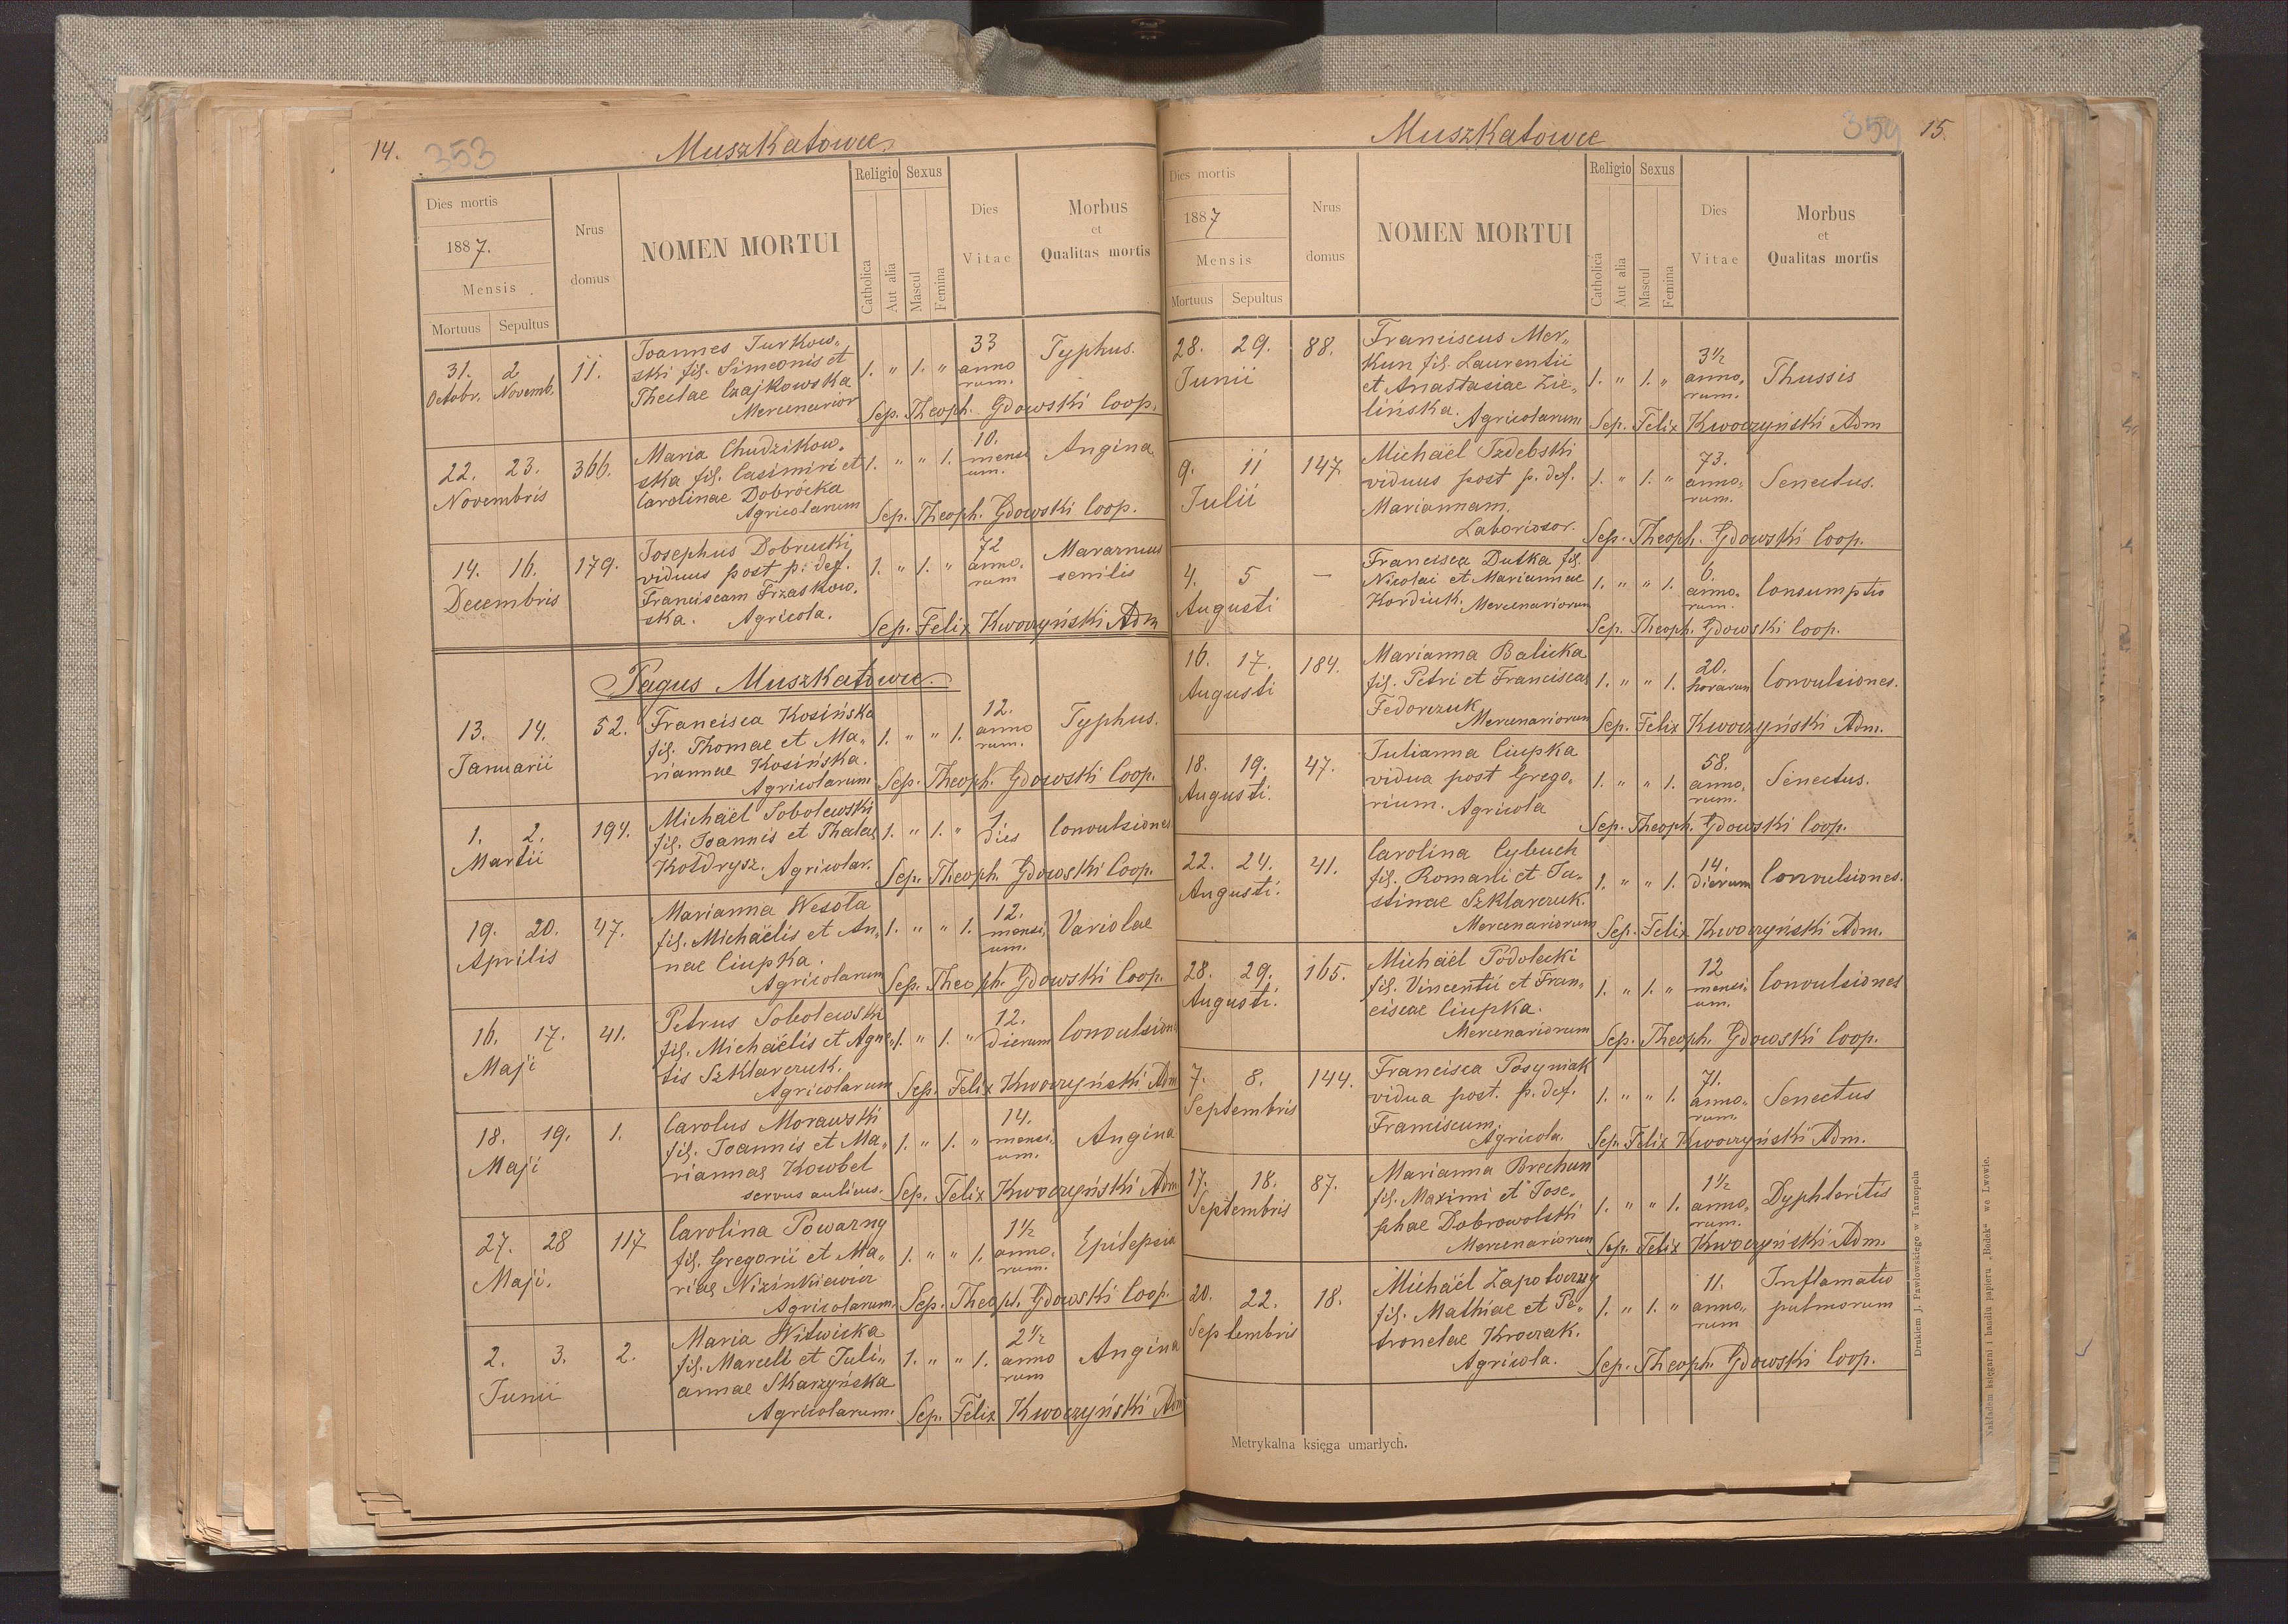 14.
353
Muszkatowce.
Dies mortis
1887.
Mensis
Mortuus Sepultus
Nrus
domus
NOMEN MORTUI
Religio
Catholica
Aut alia
Sexus
Mascul
Femina
Dies
Vitae
Morbus
et
Qualitas mortis
31. 2 11. Joannes Turkow„ 1. „ 1. „ 33 Typhus.
Octobr. Novemb. ski fil. Simeonis et anno
Theclae Czajkowska rum.
Mercenarior Sep. Theoph. Gdowski Coop.
22. 23. 366. Maria Chudzikow„ 1. „ „ 1. 10. Angina
Novembris ska fil. Casimiri et mensi
Carolinae Dobrócka um.
Agricolarum Sep. Theoph. Gdowski Coop.
14. 16. 179. Josephus Dobrucki 1. „ 1. „ 72 Mararmus
Decembris viduus post p. def. anno„ senilis
Franciscam Trzaskow„ rum
ska. Agricola. Sep. Felix Kwoczyński Adm
Pagus Muszkatowce.
13. 14. 52. Francisca Kosińska 1. „ „ 1. 12. Typhus.
Januarii fil. Thomae et Ma„ anno
riannae Kosińska. rum.
Agricolarum Sep. Theoph. Gdowski Coop.
1. 2. 194. Michaël Sobolewski 1. „ 1. „ 1. Convulsiones
Martii fil. Joannis et Theclae dies
Kołdrysz. Agricolar. Sep. Theoph. Gdowski Coop.
19. 20. 47. Marianna Wesoła 1. „ „ 1. 12. Variolae
Aprilis fil. Michaëlis et An„ mensi
nae Ciupka. um.
Agricolarum Sep. Theoph. Gdowski Coop.
16. 17. 41. Petrus Sobolewski 1. „ 1. „ 12. Convulsiones
Maji fil. Michaëlis et Agne„ dierum
tis Szklarczuk.
Agricolarum Sep. Felix Kwoczyński Adm
18. 19. 1. Carolus Morawski 1. „ 1. „ 14. Angina
Maji fil. Joannis et Ma„ mensi„
riannae Kowbel um.
servus aulicus. Sep. Felix Kwoczyński Adm
27. 28 117 Carolina Powarny 1. „ „ 1. 1½ Epilepsia
Maji. fil. Gregorii et Ma„ anno„
riae Nizinkiewicz rum.
Agricolarum. Sep. Theoph. Gdowski Coop.
2. 3. 2. Maria Witwicka 1. „ „ 1. 2½ Angina
Junii fil. Marcelli et Juli„ anno
annae Skarzyńska rum
Agricolarum. Sep. Felix Kwoczyński Adm
Muszkatowce
359 15.
Dies mortis
1887
Mensis
Mortuus Sepultus
Nrus
domus
NOMEN MORTUI
Religio
Catholica
Aut alia
Sexus
Mascul
Femina
Dies
Vitae
Morbus
et
Qualitas mortis
28. 29. 88. Franciscus Mer„ 1. „ 1. „ 3½ Thussis
Junii kun fil. Laurentii anno„
et Anastasiae Zie„ rum.
lińska. Agricolarum Sep. Felix Kwoczyński Adm
9. 11 147. Michaël Izdebski 1. „ 1. „ 73. Senectus.
Julii viduus post p. def. anno„
Mariannam. rum.
Laboriosor. Sep. Theoph. Gdowski Coop.
4. 5 – Francisca Dutka fil. 1. „ „ 1. 6. Consumptio
Augusti Nicolai et Mariannae anno„
Kordiuk. Mercenariorum rum.
Sep. Theoph. Gdowski Coop.
16. 17. 184. Marianna Balicka 1. „ „ 1. 20. Convulsiones.
Augusti fil. Petri et Franciscae horarum
Fedorczuk
Mercenariorum Sep. Felix Kwoczyński Adm.
18. 19. 47. Julianna Ciupka 1. „ „ 1. 58. Senectus.
Augusti. vidua post Grego„ anno„
rium. Agricola rum.
Sep. Theoph. Gdowski Coop.
22. 24. 41. Carolina Cybuch 1. „ „ 1. 14. Convulsiones.
Augusti. fil. Romani et Ju„ dierum
stinae Szklarczuk.
Mercenariorum Sep. Felix Kwoczyński Adm.
28. 29. 165. Michäel Podolecki 1. „ 1. „ 12 Convulsiones
Augusti. fil. Vincentii et Fran„ mensi„
ciscae Ciupka. um.
Mercenariorum Sep. Theoph. Gdowski Coop.
7. 8. 144. Francisca Posyniak 1. „ „ 1. 71. Senectus
Septembris vidua post. p. def. anno„
Franciscum. rum.
Agricola. Sep. Felix Kwoczyński Adm.
17. 18. 87. Marianna Brechun 1. „ „ 1. 1½ Dyphteritis
Septembris fil. Maximi et Jose„ anno„
phae Dobrowolski rum.
Mercenariorum Sep. Felix Kwoczyński Adm.
20. 22. 18. Michaël Zapotoczny 1. „ 1. „ 11. Inflamatio
Septembris fil. Mathiae et Pe„ anno„ pulmorum
tronelae Kroczak. rum
Agricola. Sep. Theoph. Gdowski Coop.
Metrykalna księga umarłych.
Drukiem J. Pawłowskiego w Tarnopolu
Nakładem księgarni i handlu papieru „Bodek“ we Lwowie.